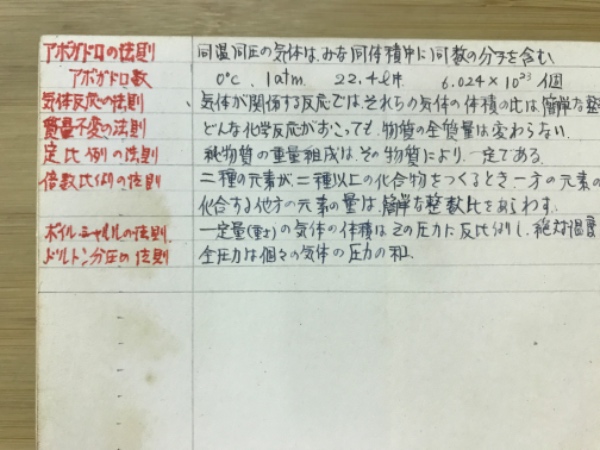 アボガドロの法則 同温同圧の気体は、みな同体積中に同数の分子を含む
アボガドロ数 0℃. 1atm. 22.4ℓ中. 6.024×10²³個
気体反応の法則 気体が関係する反応では、それらの気体の体積の比は、簡単な整
質量不変の法則 どんな化学反応がおこっても、物質の全質量は変わらない.
定比例の法則 純物質の重量組成は、その物質により、一定である.
倍数比例の法則 二種の元素が、二種以上の化合物をつくるとき、一方の元素の
化合する他方の元素の量は、簡単な整数比をあらわす.
ボイル.シャルルの法則. 一定量の気体の体積はその圧力に反比例し、絶対温度
ドルトン分圧の法則 全圧力は個々の気体の圧力の和.